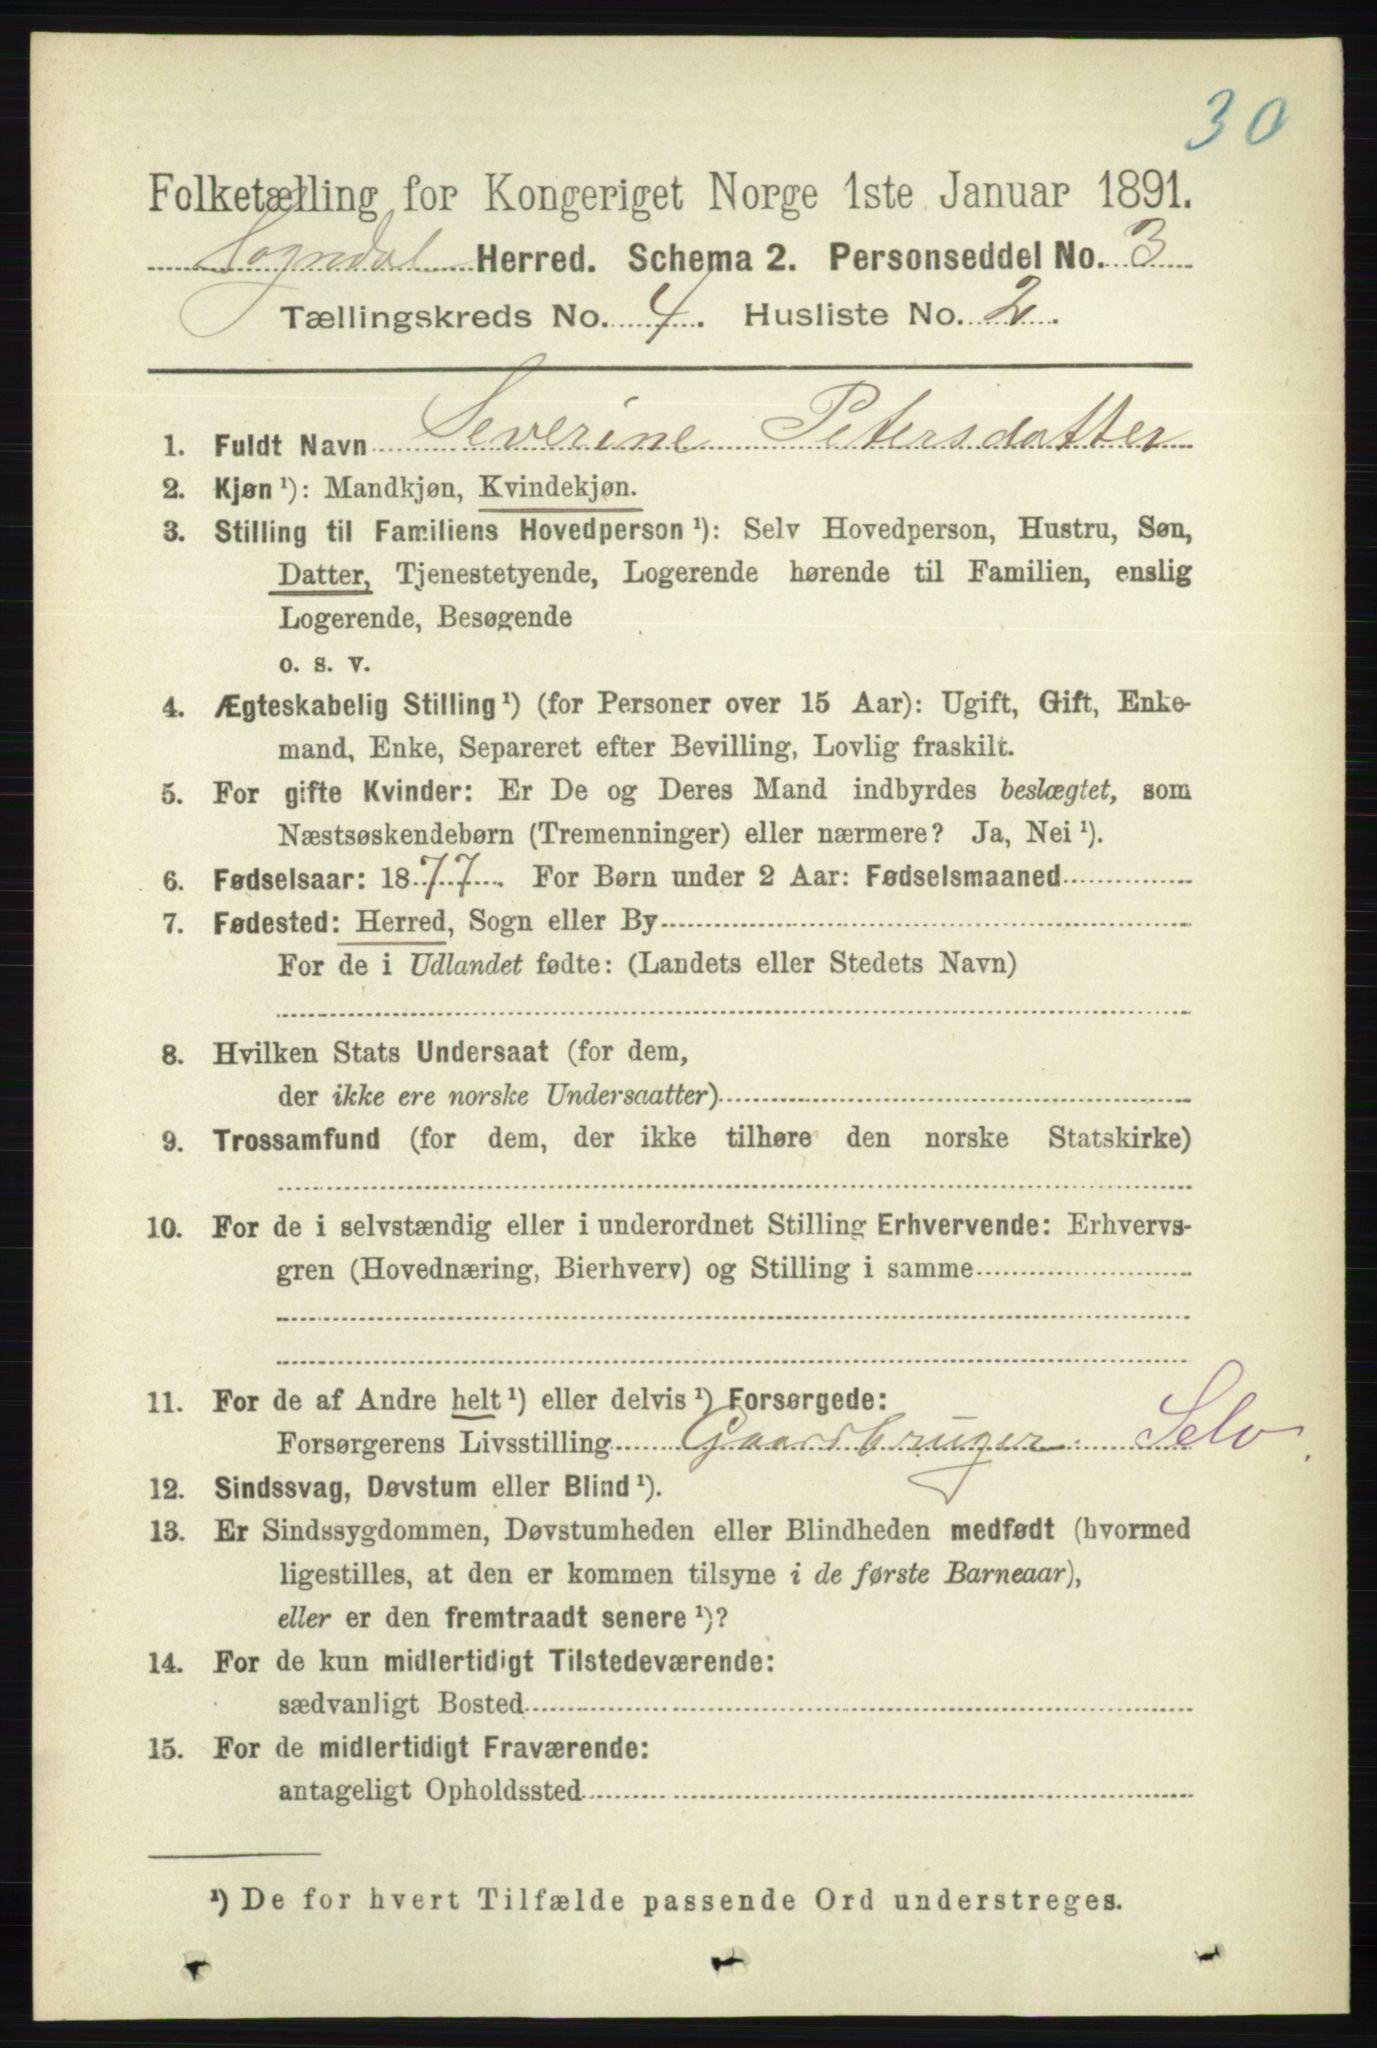 30
Folketælling for Kongeriget Norge 1ste Januar 1891.
Sogndal Herred. Schema 2. Personseddel No. 3
Tællingskreds No. 4. Husliste No. 2.
1. Fuldt Navn Severine Petersdatter
2. Kjøn ¹): Mandkjøn, Kvindekjøn.
3. Stilling til Familiens Hovedperson ¹): Selv Hovedperson, Hustru, Søn,
Datter, Tjenestetyende, Logerende hørende til Familien, enslig
Logerende, Besøgende
o. s. v.
4. Ægteskabelig Stilling ¹) (for Personer over 15 Aar): Ugift, Gift, Enke-
mand, Enke, Separeret efter Bevilling, Lovlig fraskilt.
5. For gifte Kvinder: Er De og Deres Mand indbyrdes beslægtet, som
Næstsøskendebørn (Tremenninger) eller nærmere? Ja, Nei ¹).
6. Fødselsaar: 1877. For Børn under 2 Aar: Fødselsmaaned
7. Fødested: Herred, Sogn eller By
For de i Udlandet fødte: (Landets eller Stedets Navn)
8. Hvilken Stats Undersaat (for dem,
der ikke ere norske Undersaatter)
9. Trossamfund (for dem, der ikke tilhøre den norske Statskirke)
10. For de i selvstændig eller i underordnet Stilling Erhvervende: Erhvervs-
gren (Hovednæring, Bierhverv) og Stilling i samme
11. For de af Andre helt ¹) eller delvis ¹) Forsørgede:
Forsørgerens Livsstilling Gaardbruger Selv
12. Sindssvag, Døvstum eller Blind ¹).
13. Er Sindssygdommen, Døvstumheden eller Blindheden medfødt (hvormed
ligestilles, at den er kommen tilsyne i de første Barneaar),
eller er den fremtraadt senere ¹)?
14. For de kun midlertidigt Tilstedeværende:
sædvanligt Bosted
15. For de midlertidigt Fraværende:
antageligt Opholdssted
¹) De for hvert Tilfælde passende Ord understreges.